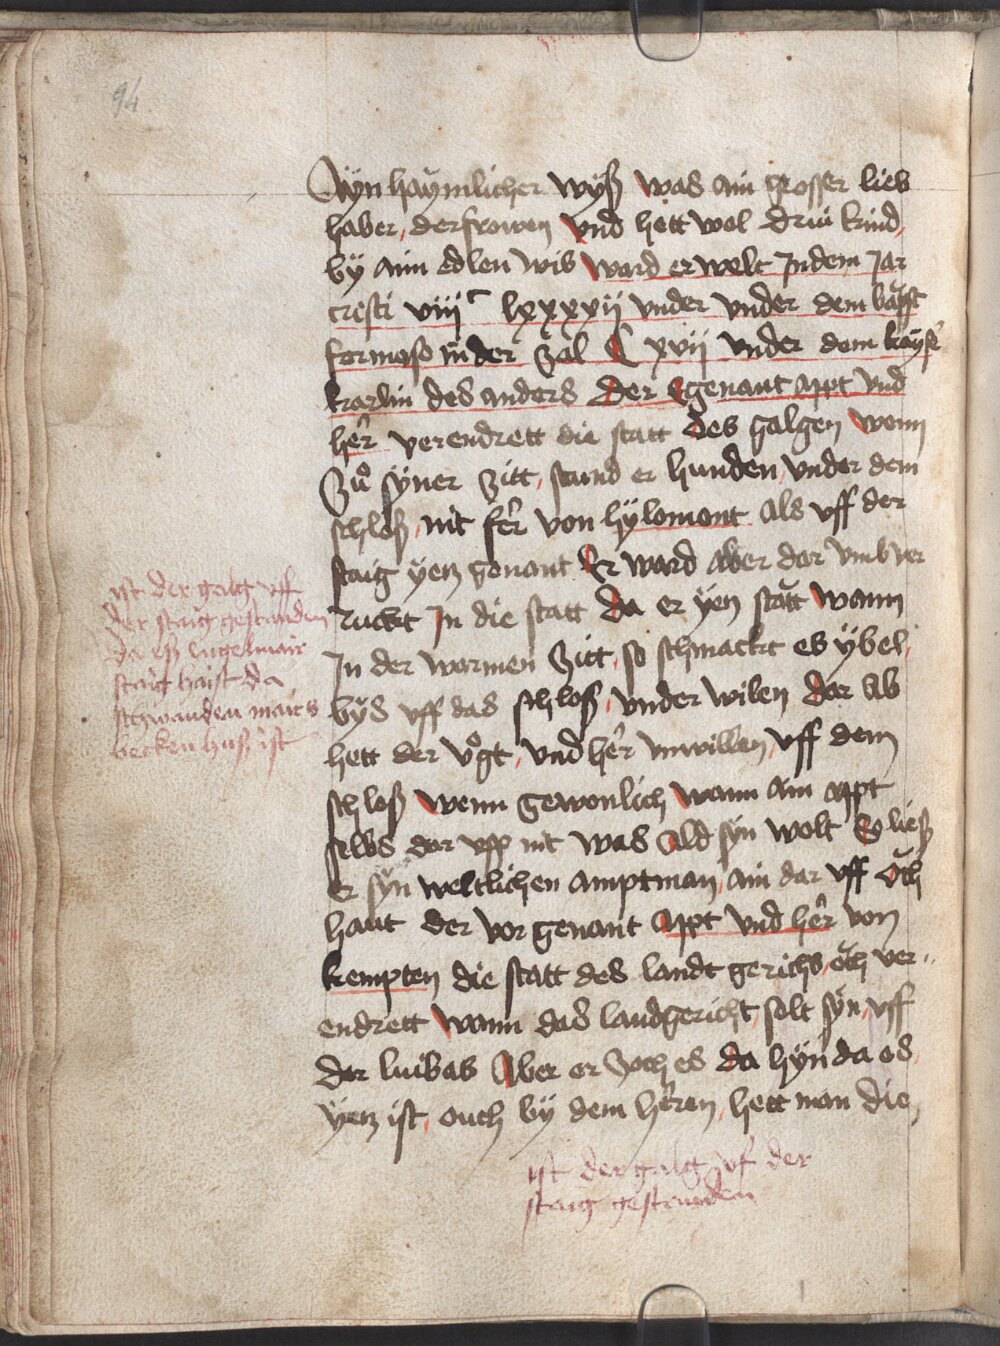 94
Ayn haÿmlicher wÿß was ain grosser lieb
haber der frowen vnd hett wol driü kind
bÿ aim edlen wib ward erwelt Jn dem Jar
cristi viiijᶜ lxxxxij vnder vnder dem bapst
formoso in der zal C xvij vnder dem kaÿsr
karlin des anders Der Egenant appt vnd
her verendrett die statt des galgen wenn
Zů sÿner Zitt stund er hunden vnder dem
schloß nit fer von hÿlomont als vff der
staig ÿetz genant Er ward aber dar vmb ver
ruckt Jn die statt da er ÿetz statt wann
Jn der warmen Zitt so schmackt es ÿbel
byß vff das schloß vnder wilen dar ab
hett der vogt vnd her vnwillen vff dem
schloß wenn gewonlich wann ain appt
selbs dar vff nit was ald sÿn wolt So ließ
er sÿn weltlichen amptman ain dar vff och
haut der vor genant appt vnd her von
kempten die statt des landt gerichs och ver
endrett wann das landgericht solt sÿn vff
der luibas Aber er zoch es da hÿn da es
ÿetz ist ouch bÿ dem heren hett man die
ist der galg vff
der staig gestanden
da eß Lugelmair
staig haist da
schwanden mairs
becken huß ist
ist der galg vf der
staig gestanden